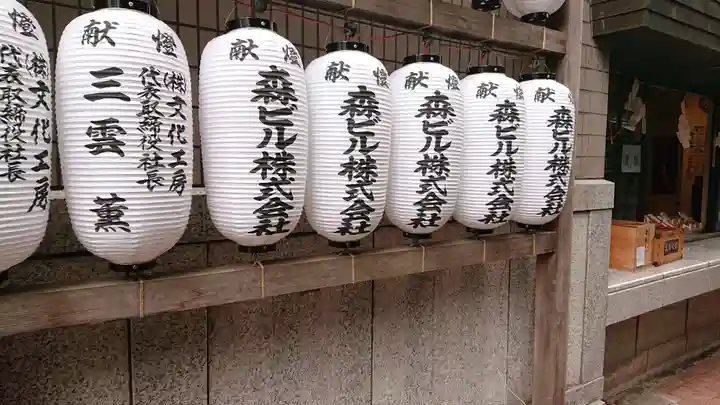 献燈
(株)文化工房
代表取締役社長
献燈
(株)文化工房
代表取締役社長
三雲薫
献燈
森ビル株式会社
献燈
森ビル株式会社
献燈
森ビル株式会社
献燈
森ビル株式会社
献燈
森ビル株式会社